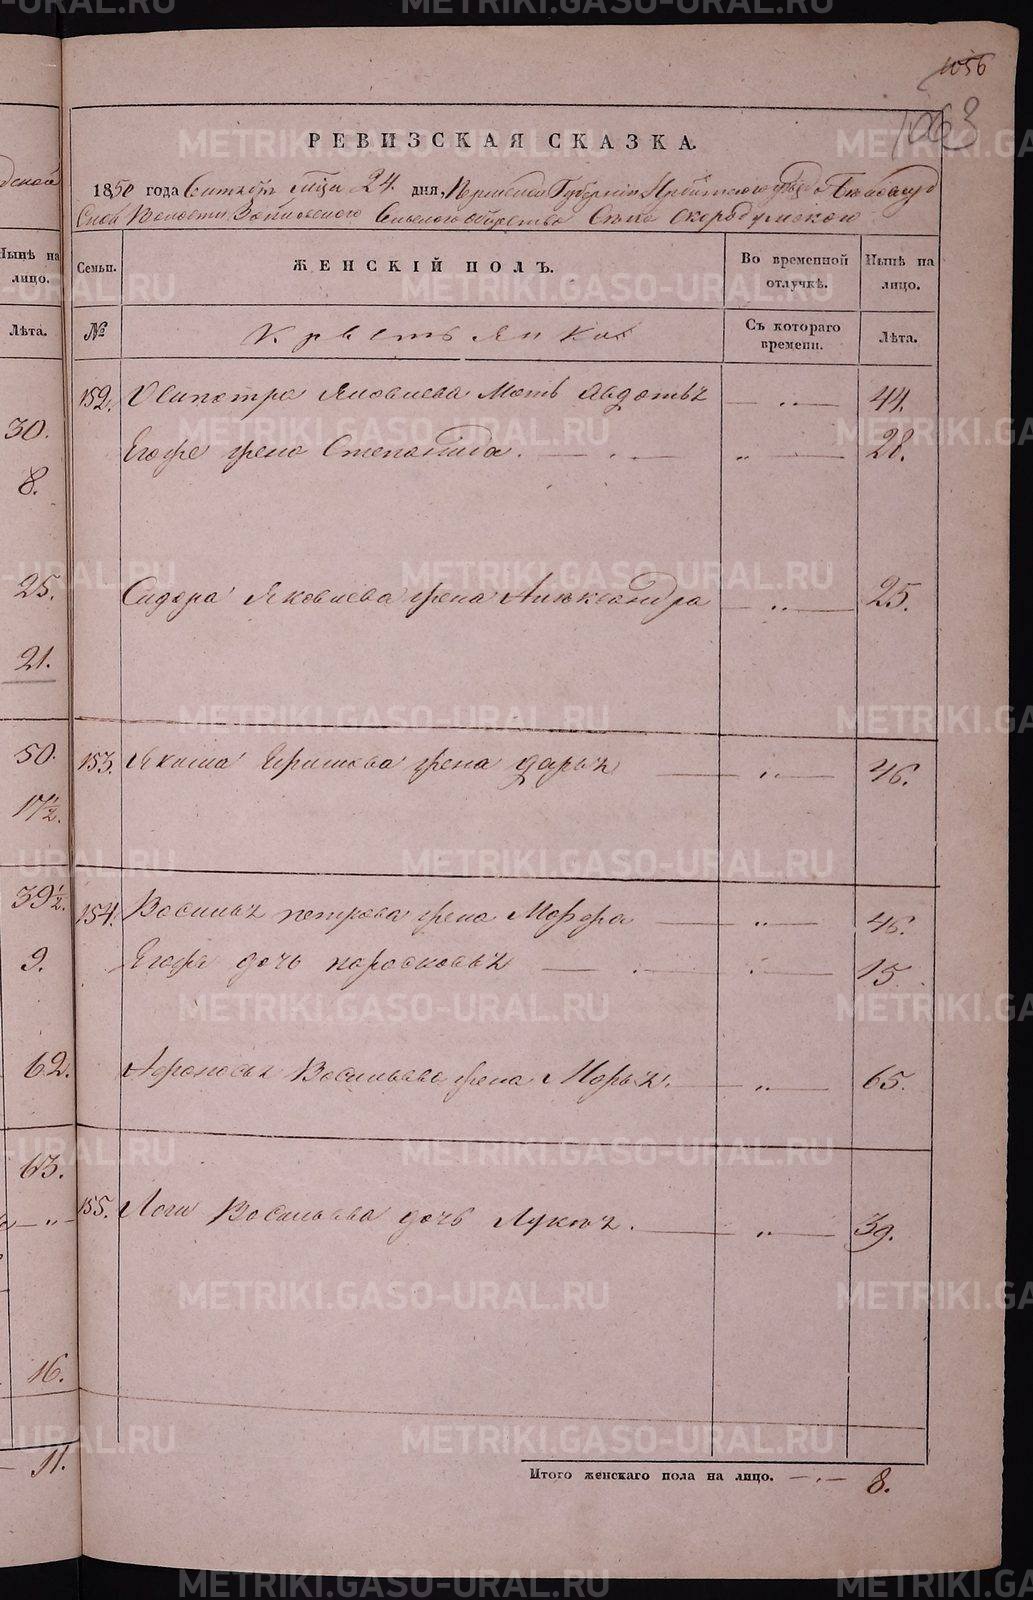 1056
1063
РЕВИЗСКАЯ СКАЗКА.
1850 года Сентября мца 24. дня, Пермской Губерніи Ирбитскаго уезда
Волости Сельского общества Села Скородумскаго
Ныне на лицо.
Семьи.
ЖЕНСКІЙ ПОЛЪ.
Во временной отлучкѣ.
Нынѣ на лицо.
Лѣта.
№
Крестьянки
Съ котораго времени.
Лѣта.
152. Яковлева Мать Авдотья — „ — 44.
30.
Его же жена Степанида. — „ — 28.
8.
25.
Сидора Яковлева жена Александра — „ — 25.
21.
50.
153. Якима Ермилова жена Дарья — „ — 46.
17½.
39½.
154. Василья Петрова жена Марфа — „ — 46.
9.
Его же дочь — 15.
62.
Афонасья Васильева жена Марья. — „ — 65.
63.
— „ —
155. Васильева дочь — „ — 39.
16.
11.
Итого женскаго пола на лицо. — „ — 8.
METRIKI.GASO-URAL.RU